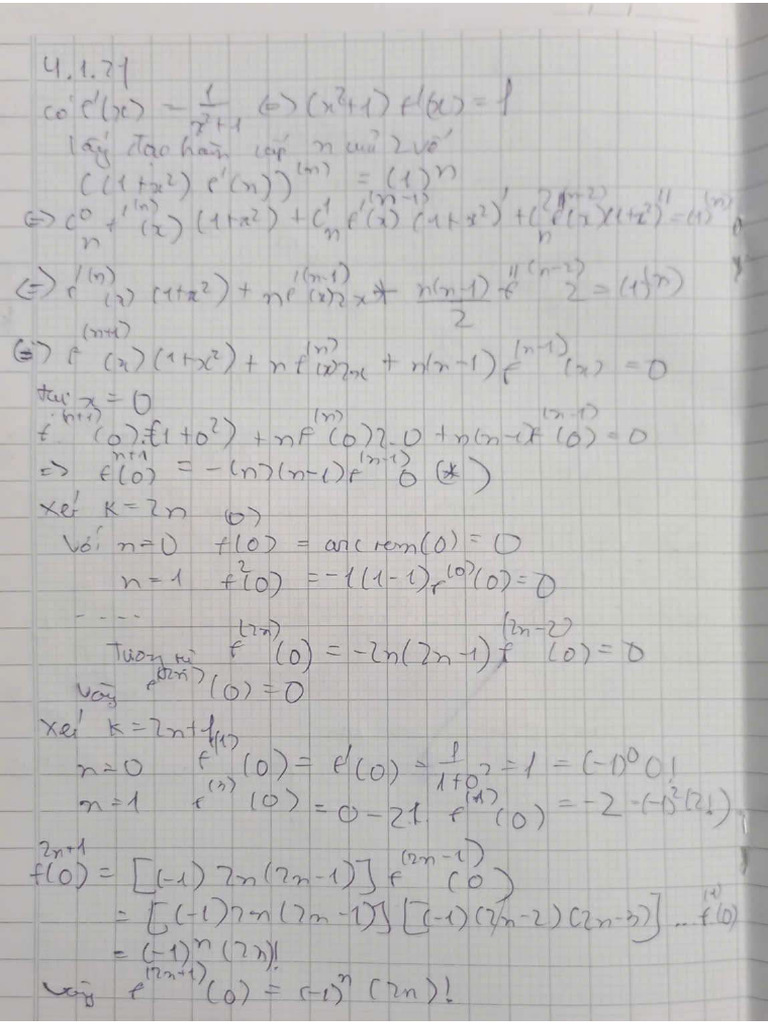 4.1.21
có f'(x) = 1/(x²+1) <=> (x²+1) f'(x) = 1
lấy đạo hàm cấp n của 2 vế
((1+x²) f'(x))^(n) = (1)^n
<=> C_n^0 f'^(n)(x) (1+x²) + C_n^1 f'^(n-1)(x) (1+x²)' + C_n^2 f'^(n-2)(x)(1+x²)'' = (1)^(n)
<=> f'^(n)(x) (1+x²) + n f'^(n-1)(x) 2x + n(n-1)/2 f'^(n-2) 2 = (1)^(n)
<=> f^(n+1)(x) (1+x²) + n f^(n)(x) 2x + n(n-1) f^(n-1)(x) = 0
tại x = 0
f^(n+1)(0).(1+0²) + n f^(n)(0) 2.0 + n(n-1) f^(n-1)(0) = 0
=> f^(n+1)(0) = -(n)(n-1) f^(n-1) 0 (*)
xét k = 2n
Với n=0 f^(0)(0) = arctan(0) = 0
n=1 f^2(0) = -1(1-1) f^(0)(0) = 0
....
Tương tự f^(2n)(0) = -2n(2n-1) f^(2n-2)(0) = 0
Vậy f^(2n)(0) = 0
xét k = 2n+1
n=0 f^(1)(0) = f'(0) = 1/(1+0²) = 1 = (-1)^0 0!
n=1 f^(3)(0) = 0-2.1. f^(1)(0) = -2 = (-1)^2 (2!)
f^(2n+1)(0) = [(-1) 2n(2n-1)] f^(2n-1)(0)
= [(-1)2n(2n-1)] [(-1)(2n-2)(2n-3)] ... f^(1)(0)
= (-1)^n (2n)!
Vậy f^(2n+1)(0) = (-1)^n (2n)!